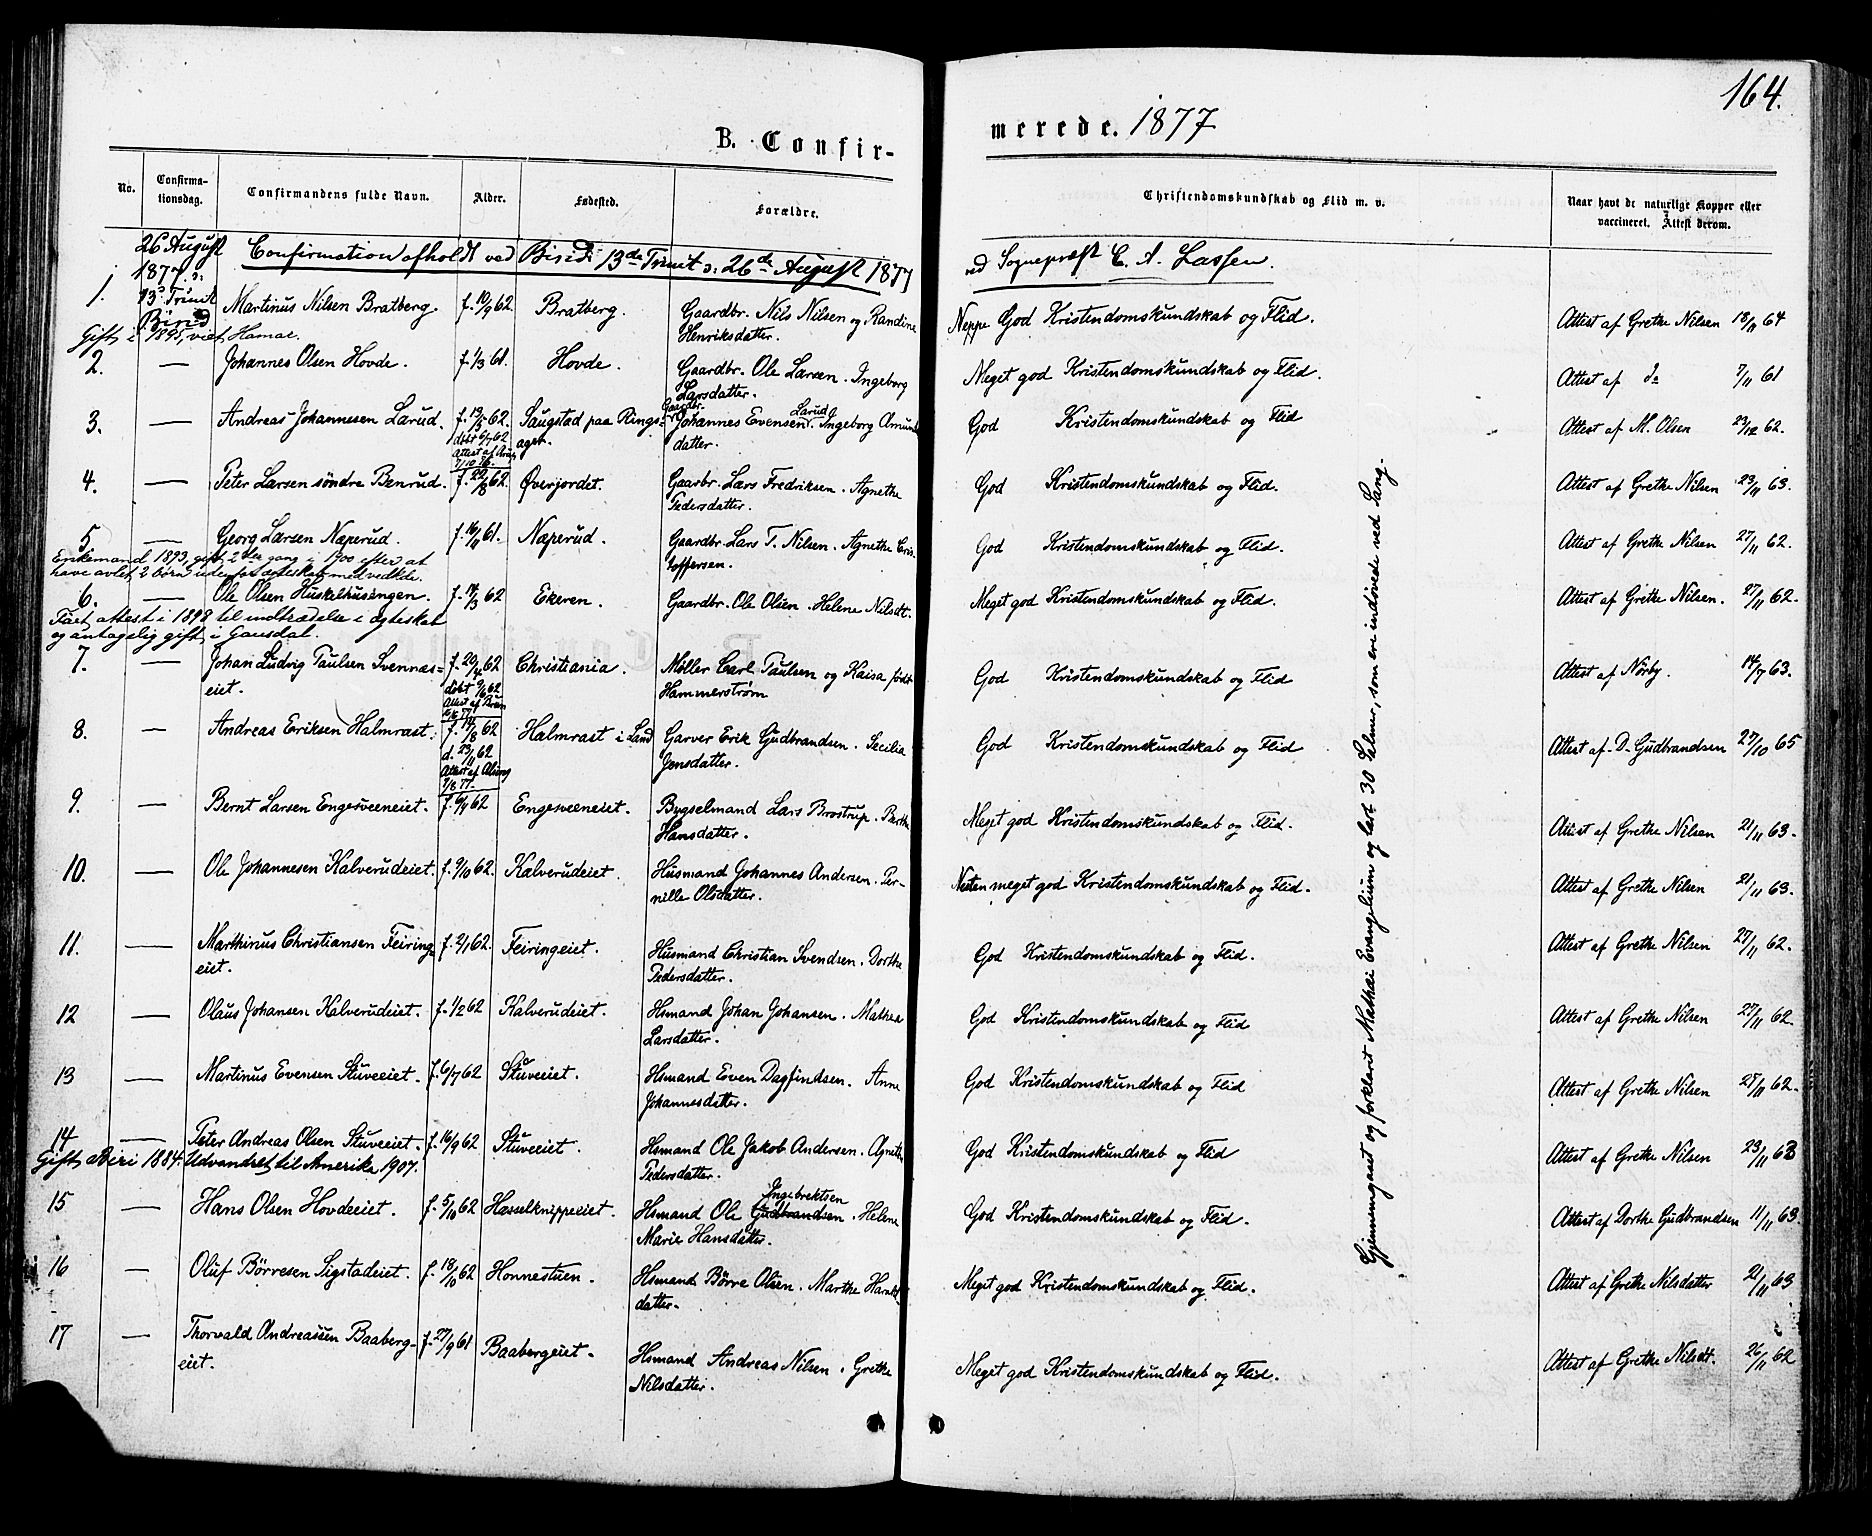 164.
B. Confir-
merede. 1877
No.
Confirma-
tionsdag.
Confirmandens fulde Navn.
Alder.
Fødested.
Forældre.
Christendomskundskab og Flid m. v.
Naar havt de naturlige Kopper eller
vaccineret. Attest derom.
26 August
1877
13de Trinit
Birid
Confirmation afholdt ved Birid 13de Trinit o: 26de August 1877
ved Sognepræst C. A. Lassen.
1. Martinus Nilsen Bratberg. f. 10/9 62. Bratberg. Gaardbr. Nils Nilsen og Randine
Henriksdatter.
Neppe God Kristendomskundskab og Flid. Attest af Grethe Nilsen 18/11 64
Gift i 1895, viet Hamar.
2. — Johannes Olsen Hovde. f. 1/3 61. Hovde. Gaardbr. Ole Larsen. Ingeborg
Larsdatter.
Meget god Kristendomskundskab og Flid. Attest af do 7/11 61
3. — Andreas Johannesen Larud. f. 13/5 62. Saugstad paa Rings=
ager.
døbt 6/7 62
Attest af
7/10 76.
Gaardbr. Johannes Evensen Larud. Ingeborg Amunds
datter.
God Kristendomskundskab og Flid Attest af M. Olsen 23/12 62.
4. — Peter Larsen søndre Benrud. f. 22/8 62. Øverjordet. Gaarbr. Lars Fredriksen. Agnethe
Pedersdatter.
God Kristendomskundskab og Flid. Attest af Grethe Nilsen 23/11 63.
5 — Georg Larsen Næperud. f. 16/11 61. Næperud. Gaardbr. Lars T. Nilsen. Agnethe Cris
toffersen.
God Kristendomskundskab og Flid. Attest af Grethe Nilsen 27/11 62.
Enkemand 1893, gift 2den gang i 1900 efter at
have avlet 2 børn udenfor ægteskab med vedkde.
6. — Ole Olsen Huskelhusengen. f. 14/3 62 Ekeren. Gaardbr. Ole Olsen. Helene Nilsdt.
Meget god Kristendomskundskab og Flid. Attest af Grethe Nilsen. 27/11 62.
Faaet attest i 1892 til indtrædelse i ægteskab
og antagelig gift i Gausdal.
7. — Johan Ludvig Paulsen Svennæs=
eiet.
f. 20/4 62
døbt 9/6 62
Attest af
Christiania. Møller Carl Paulsen og Kaisa født
Hammerstrøm
God Kristendomskundskab og Flid Attest af Nörby. 14/7 63.
8. — Andreas Eriksen Halmrast. f. 19/8 62
d. 23/11 62
Attest af
7/8 77.
Halmrast i Land Garver Erik Gudbrandsen. Secilia
Jensdatter.
God Kristendomskundskab og Flid Attest af D. Gudbrandsen 27/10 65
9. — Bernt Larsen Engesveeneiet. f. 6/4 62 Engesveeneiet. Bygselmand Lars Brostrup. Berthe
Hansdatter.
Meget god Kristendomskundskab og Flid. Attest af Grethe Nilsen 21/11 63.
10. — Ole Johannesen Kalverudeiet. f. 9/10 62. Kalverudeiet. Husmand Johannes Andersen. Per-
nille Olsdatter.
Nesten meget god Kristendomskundskab og Flid. Attest af Grethe Nilsen 21/11 63.
11. — Marthinus Christiansen Feiring=
eiet.
f. 2/1 62. Feiringeiet. Husmand Christian Svendsen. Dorthe
Pedersdatter.
God Kristendomskundskab og Flid. Attest af Grethe Nilsen 27/11 62.
12 — Olaus Johansen Kalverudeiet. f. 1/2 62 Kalverudeiet. Hsmand Johan Johansen. Mathea
Larsdatter.
God Kristendomskundskab og Flid Attest af Grethe Nilsen 27/11 62.
13 — Martinus Evensen Stuveeiet. f. 6/7 62 Stuveeiet. Hsmand Even Dagfindsen. Anne
Johannesdatter.
God Kristendomskundskab og Flid Attest af Grethe Nilsen 25/11 62.
14 — Peter Andreas Olsen Stuveeiet. f. 16/9 62 Stuveeiet. Hsmand Ole Jakob Andersen. Agnethe
Pedersdatter.
God Kristendomskundskab og Flid Attest af Grethe Nilsen 23/11 63
Gift i Biri 1884. Udvandret til Amerika 1907.
15 — Hans Olsen Hovdeeiet. f. 5/10 62 Hasselknippeeiet. Hsmand Ole Gudbrandsen Ingebrektsen. Helene
Marie Hansdatter.
God Kristendomskundskab og Flid. Attest af Dorthe Gudbrandsen 11/11 63.
16 — Oluf Börresen Sigstadeiet. f. 18/10 62 Honnestuen. Hsmand Börre Olsen. Marthe Harald
datter.
Meget god Kristendomskundskab og Flid. Attest af Grethe Nilsdatter 21/11 63
17 — Thorvald Andreassen Baaberg-
eiet.
f. 27/9 61 Baabergeiet. Hsmand Andreas Nilsen. Grethe
Nilsdatter.
Meget god Kristendomskundskab og Flid. Attest af Grethe Nilsdt. 26/11 62
Gjennemgaaet og forklaret Mathæi Evangelium og lært 30 Salmer, som ere indøvede ved Sang.